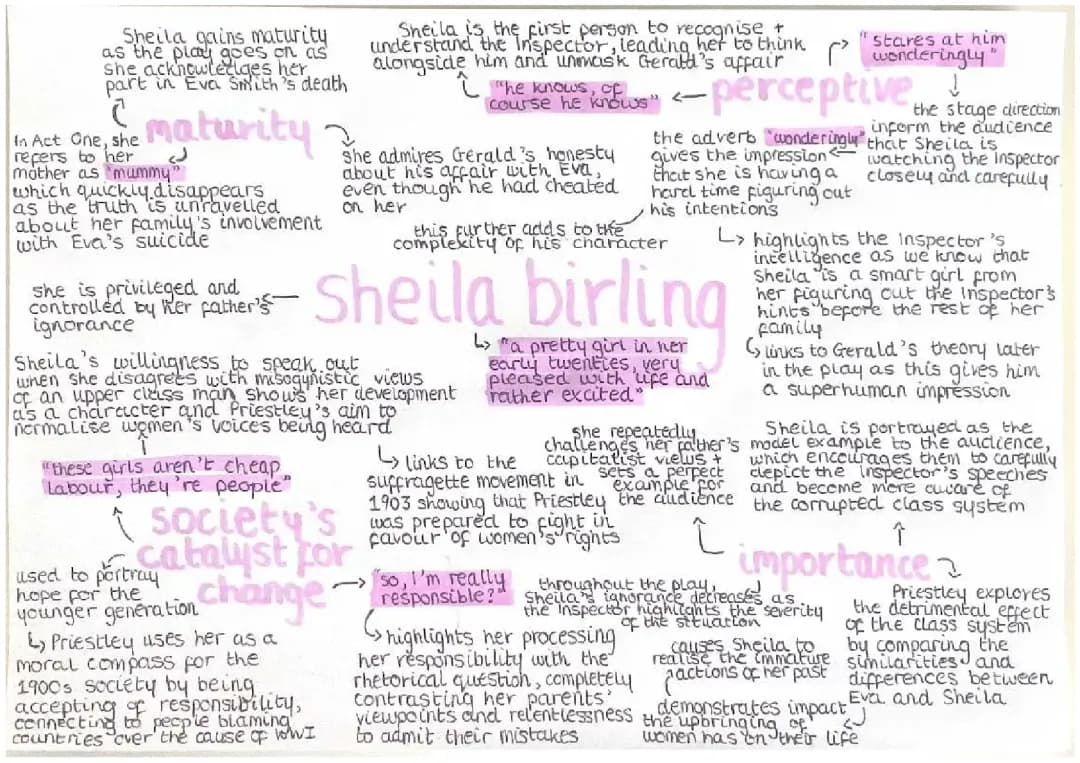 Sheila gains maturity
as the play goes on as
she acknowledges her
part in Eva Smith's death
maturity
In Act One, she
refers to her
mother as "mummy"
which quickly disappears
as the truth is unravelled
about her family's involvement
with Eva's suicide
she admires Gerald's honesty
about his affair with Eva,
even though he had cheated
on her
this further adds to the
complexity of his character
Sheila is the first person to recognise +
understand the Inspector, leading her to think
alongside him and unmask Gerald's affair
"he knows, of
course he knows"
perceptive
"stares at him
wonderingly"
the stage direction
inform the audience
that Sheila is
watching the Inspector
closely and carefully
the adverb "wonderingly"
gives the impression
that she is having a
hard time figuring out
his intentions
highlights the Inspector's
intelligence as we know that
Sheila is a smart girl from
her figuring out the Inspector's
hints before the rest of her
family
links to Gerald's theory later
in the play as this gives him
a superhuman impression
sheila birling
she is privileged and
controlled by her father's
ignorance
"a pretty girl in her
early twenties, very
pleased with life and
rather excited"
Sheila's willingness to speak out
when she disagrees with misogynistic views
of an upper class man shows her development
as a character and Priestley's aim to
normalise women's voices being heard
"these girls aren't cheap
labour, they're people"
links to the
suffragette movement in
1903 showing that Priestley
was prepared to fight in
favour of women's rights
society's
catalyst for
change
used to portray
hope for the
younger generation
Priestley uses her as a
moral compass for the
1900s society by being
accepting of responsibility,
connecting to people blaming
countries over the cause of WWI
"so, I'm really
responsible?"
highlights her processing
her responsibility with the
rhetorical question, completely
contrasting her parents'
viewpoints and relentlessness
to admit their mistakes
she repeatedly
challenges her father's
capitalist views +
sets a perfect
example for
the audience
Sheila is portrayed as the
model example to the audience,
which encourages them to carefully
depict the Inspector's speeches
and become more aware of
the corrupted class system
importance
throughout the play,
Sheila's ignorance decreases as
the Inspector highlights the severity
of the situation
causes Sheila to
realise the immature
actions of her past
demonstrates impact
the upbringing of
women has on their life
Priestley explores
the detrimental effect
of the class system
by comparing the
similarities and
differences between
Eva and Sheila